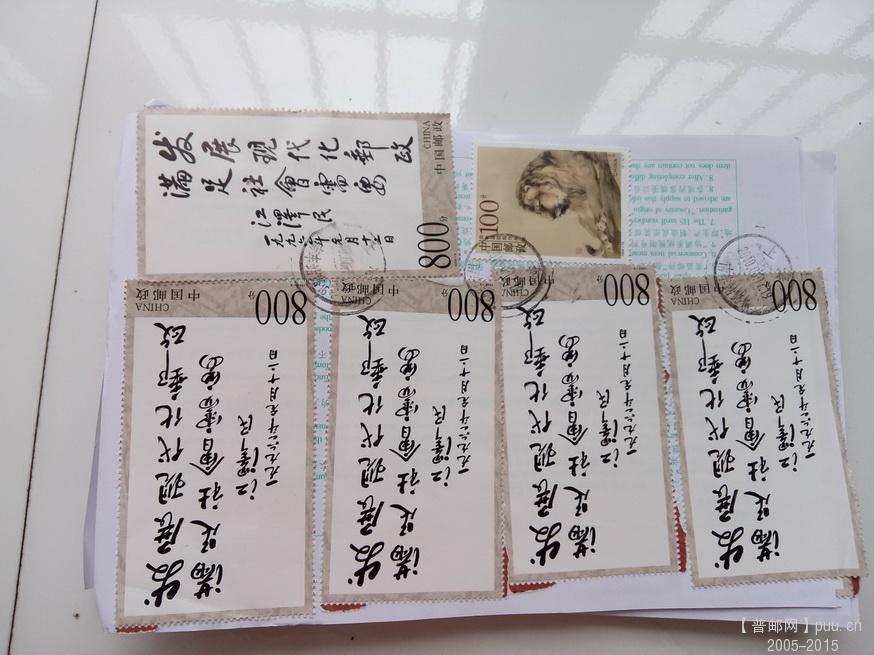 发展现代化郵政
满足社會需要
江澤民
一九九六年元月十二日
800分
中国邮政
CHINA
100分
中国邮政
item does not contain any da
8. After completing
are advised to supply this inf
ganization. "Country of origin
7. The HS tariff number
Commercial item mean
中国邮政
CHINA
800分
发展现代化郵政
满足社會需要
江澤民
一九九六年元月十二日
中国邮政
CHINA
800分
发展现代化郵政
满足社會需要
江澤民
一九九六年元月十二日
中国邮政
CHINA
800分
发展现代化郵政
满足社會需要
江澤民
一九九六年元月十二日
中国邮政
CHINA
800分
发展现代化郵政
满足社會需要
江澤民
一九九六年元月十二日
【普邮网】puu.cn
2005-2015